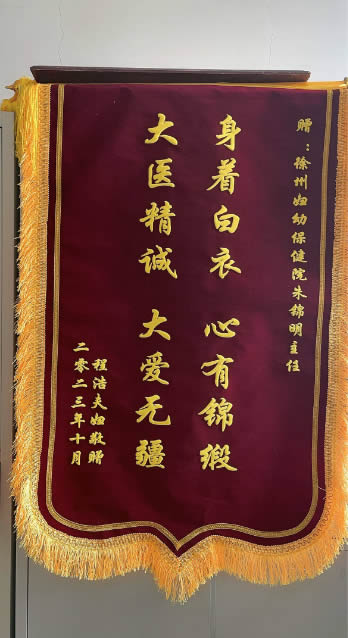 赠：徐州妇幼保健院朱锦明主任
身着白衣 心有锦缎
大医精诚 大爱无疆
程洁夫妇敬赠
二零二三年十月